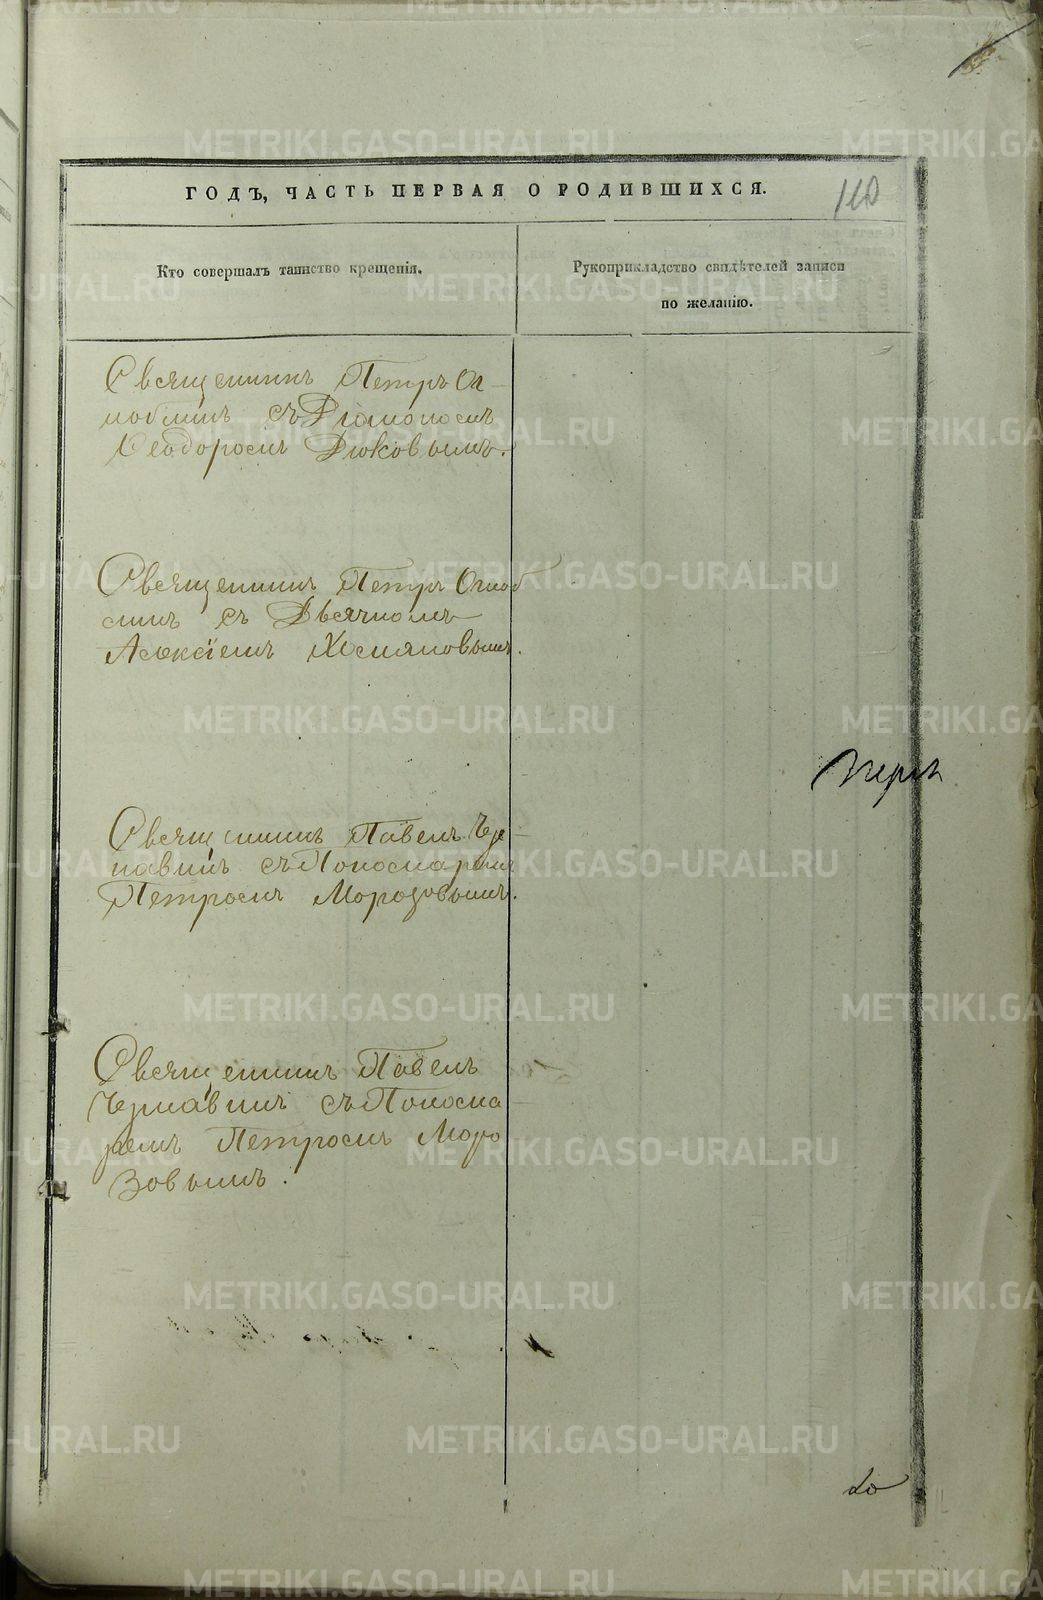 ГОДЪ, ЧАСТЬ ПЕРВАЯ О РОДИВШИХСЯ.
110
Кто совершалъ таинство крещенія.
Рукоприкладство свидѣтелей записи
по желанію.
Священникъ Петръ
съ Діакономъ
Ѳеодоромъ Дюковымъ.
Священникъ Петръ
съ Дьячкомъ
Алексіемъ Хемяновымъ.
Священникъ Павелъ Чер
навинъ съ Пономаремъ
Петромъ Морозовымъ.
Священникъ Павелъ
Чернавинъ съ Понома
ремъ Петромъ Моро
зовымъ.
METRIKI.GASO-URAL.RU